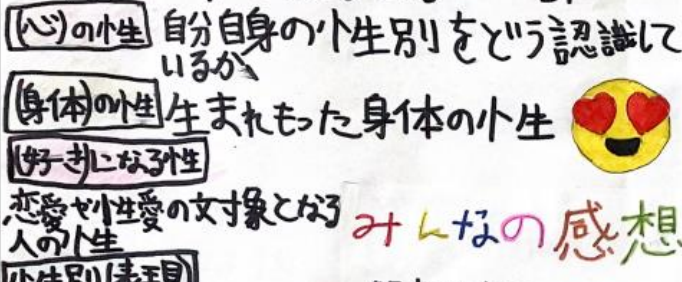 (心)の性
自分自身の性別をどう認識して
いるか、
(身体)の性
生まれもった身体の性
(好き)になる性
恋愛や性愛の対象となる
人の性
みんなの感想
性別(表現)